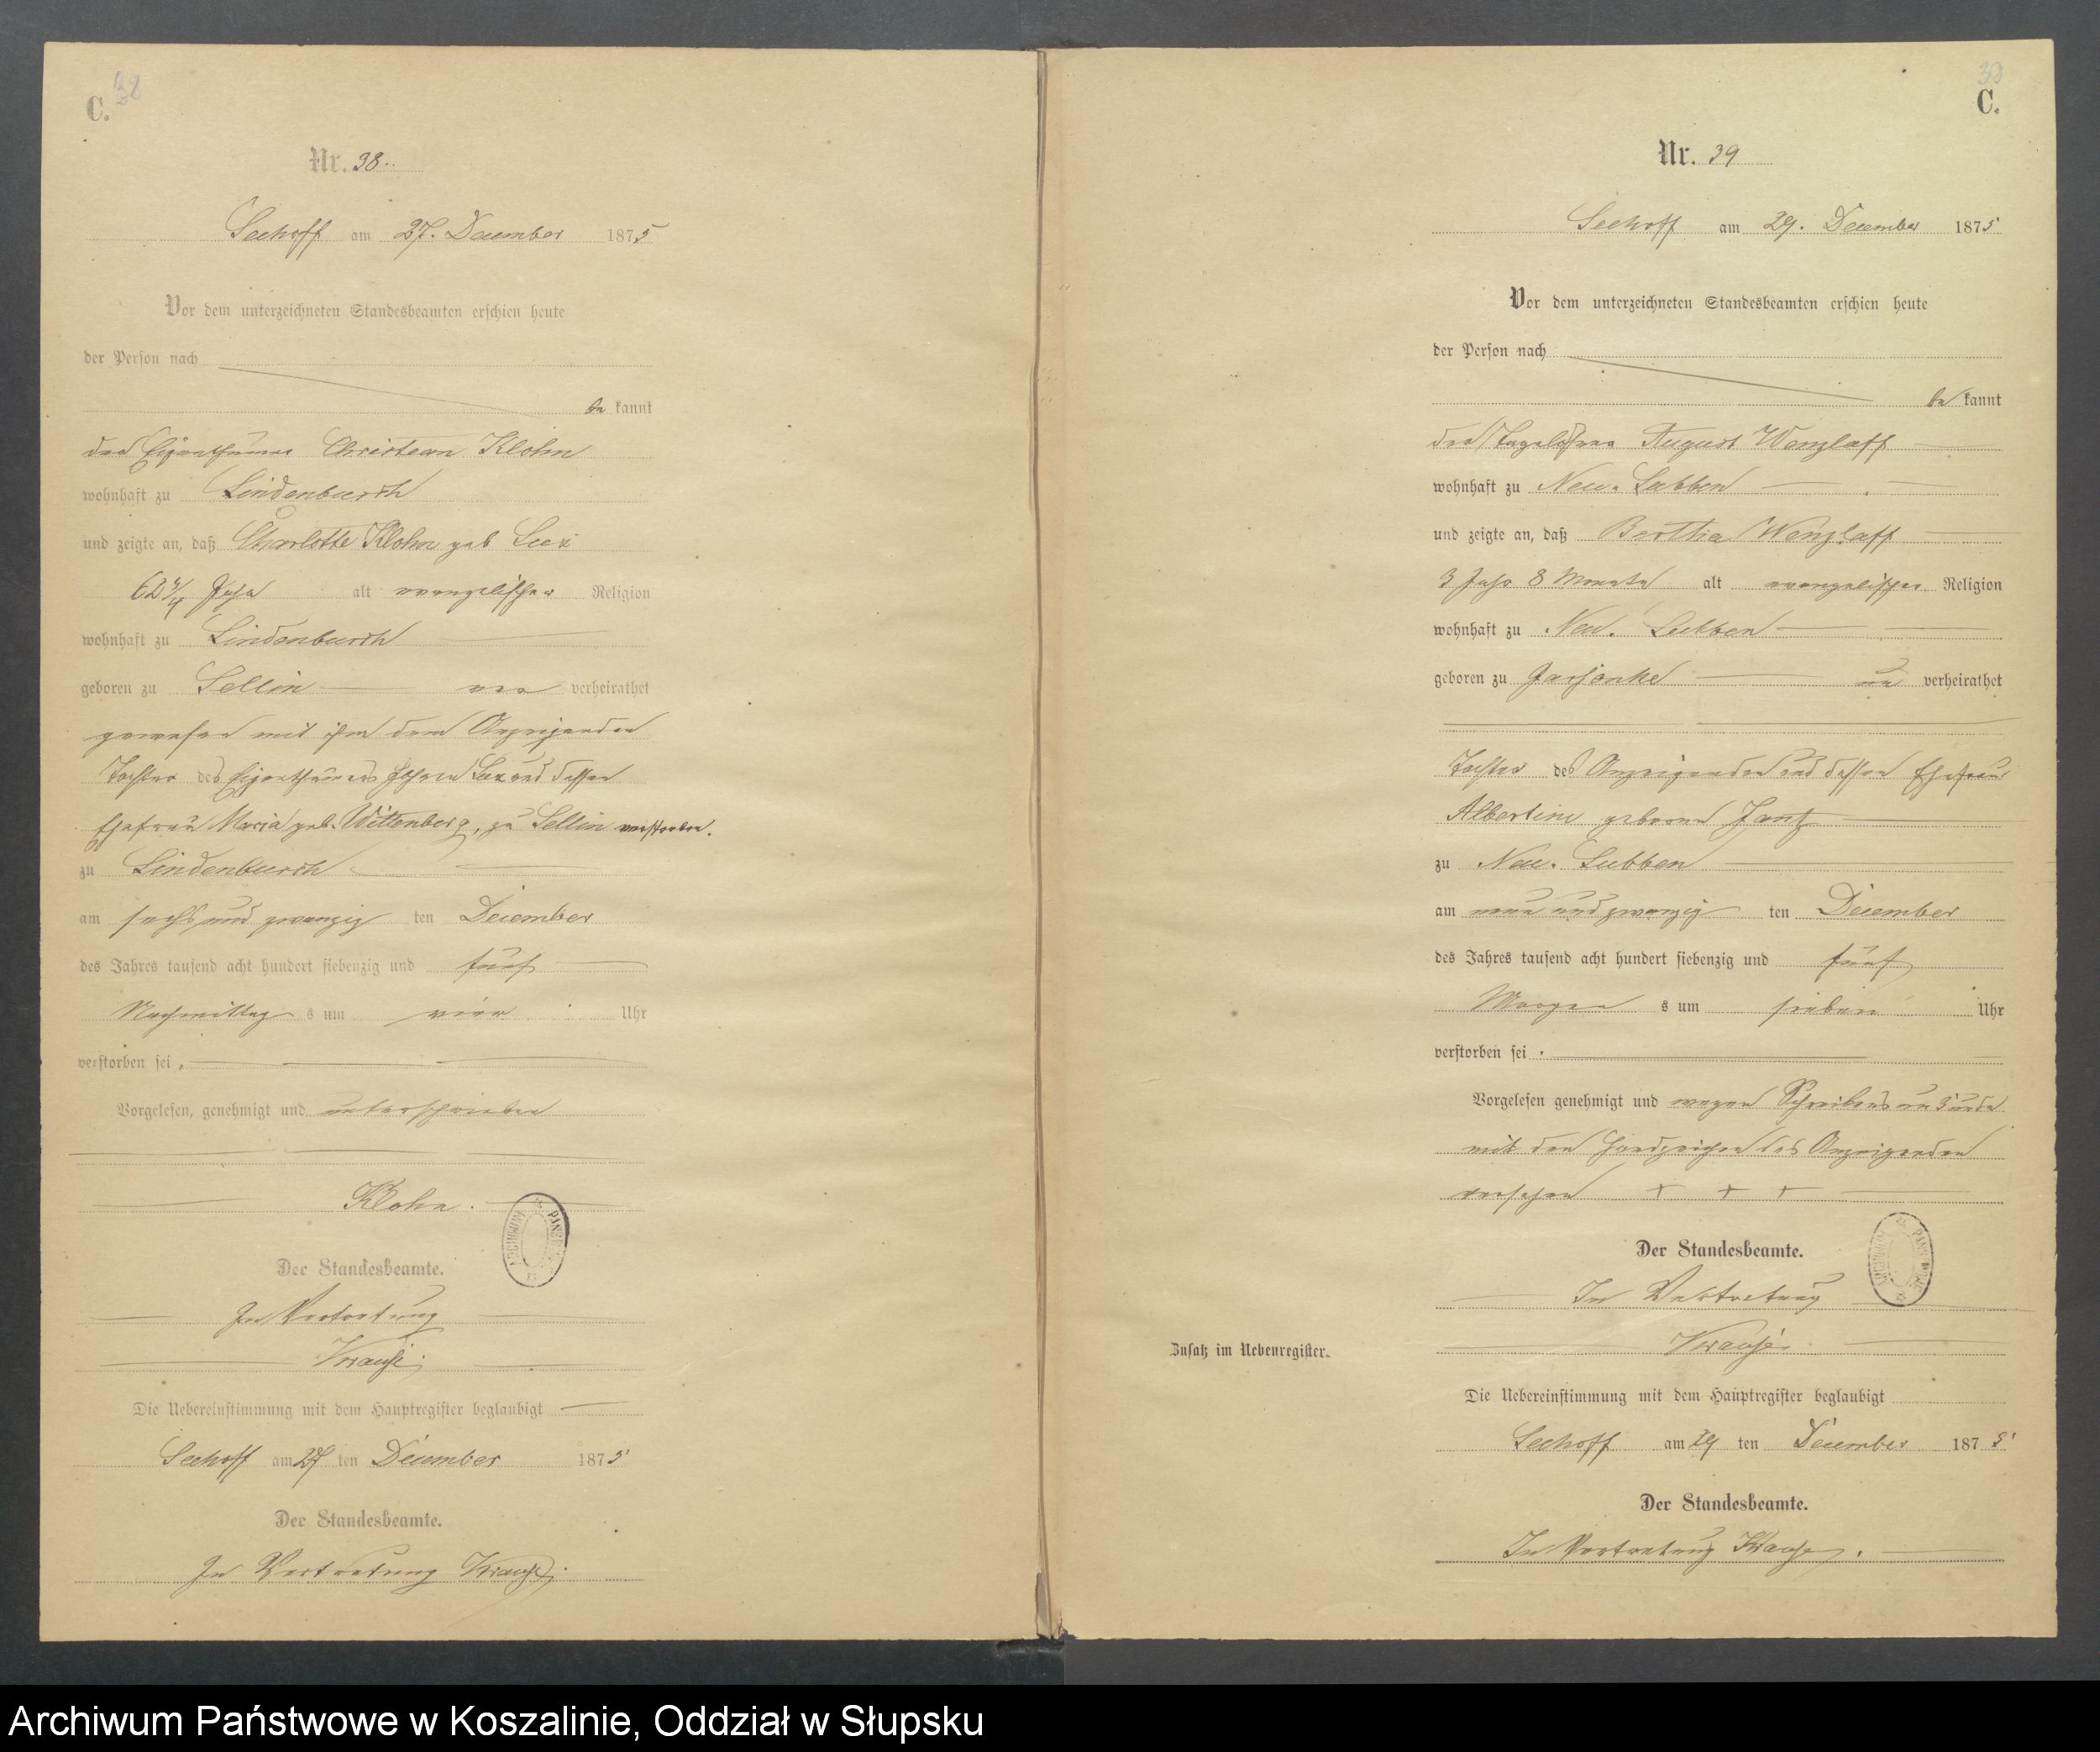 38
C.
Nr. 38.
Seehoff am 27. December 1875
Vor dem unterzeichneten Standesbeamten erschien heute
der Person nach
be kannt
der Eigenthümer Christean Klohn
wohnhaft zu Lindenbursch
und zeigte an, daß Charlotte Klohn geb
62 3/4 Jahr alt evangelischer Religion
wohnhaft zu Lindenbursch
geboren zu Sellin war verheirathet
gewesen mit ihm dem Anzeigenden
Tochter des Eigenthümers und dessen
Ehefrau Maria geb. Wittenberg, zu Sellin verstorben.
zu Lindenbursch
am sechs und zwanzig ten December
des Jahres tausend acht hundert siebenzig und fünf
Nachmittag s um vier Uhr
verstorben sei.
Vorgelesen, genehmigt und unterschrieben
Klohn.
Der Standesbeamte.
In Vertretung
Krause.
Die Uebereinstimmung mit dem Hauptregister beglaubigt
Seehoff am 27 ten December 1875
Der Standesbeamte.
In Vertretung Krause.
39
C.
Nr. 39
Seehoff am 29. December 1875
Vor dem unterzeichneten Standesbeamten erschien heute
der Person nach
be kannt
der Tagelöhner August Wenzlaff
wohnhaft zu Neu. Lubben
und zeigte an, daß Bertha Wenzlaff
3 Jahr 8 Monate alt evangelischer Religion
wohnhaft zu Neu. Lubben
geboren zu un verheirathet
Tochter des Anzeigenden und dessen Ehefrau
Albertine geborene Jantz
zu Neu. Lubben
am neun und zwanzig ten December
des Jahres tausend acht hundert siebenzig und fünf
Morgen s um sieben Uhr
verstorben sei.
Vorgelesen genehmigt und wegen Schreibens unkunde
mit den Handzeichen des Anzeigenden
versehen + + +
Der Standesbeamte.
In Vertretung
Krause.
Zusatz im Nebenregister.
Die Uebereinstimmung mit dem Hauptregister beglaubigt
Seehoff am 29 ten December 1875
Der Standesbeamte.
In Vertretung Krause.
Archiwum Państwowe w Koszalinie, Oddział w Słupsku